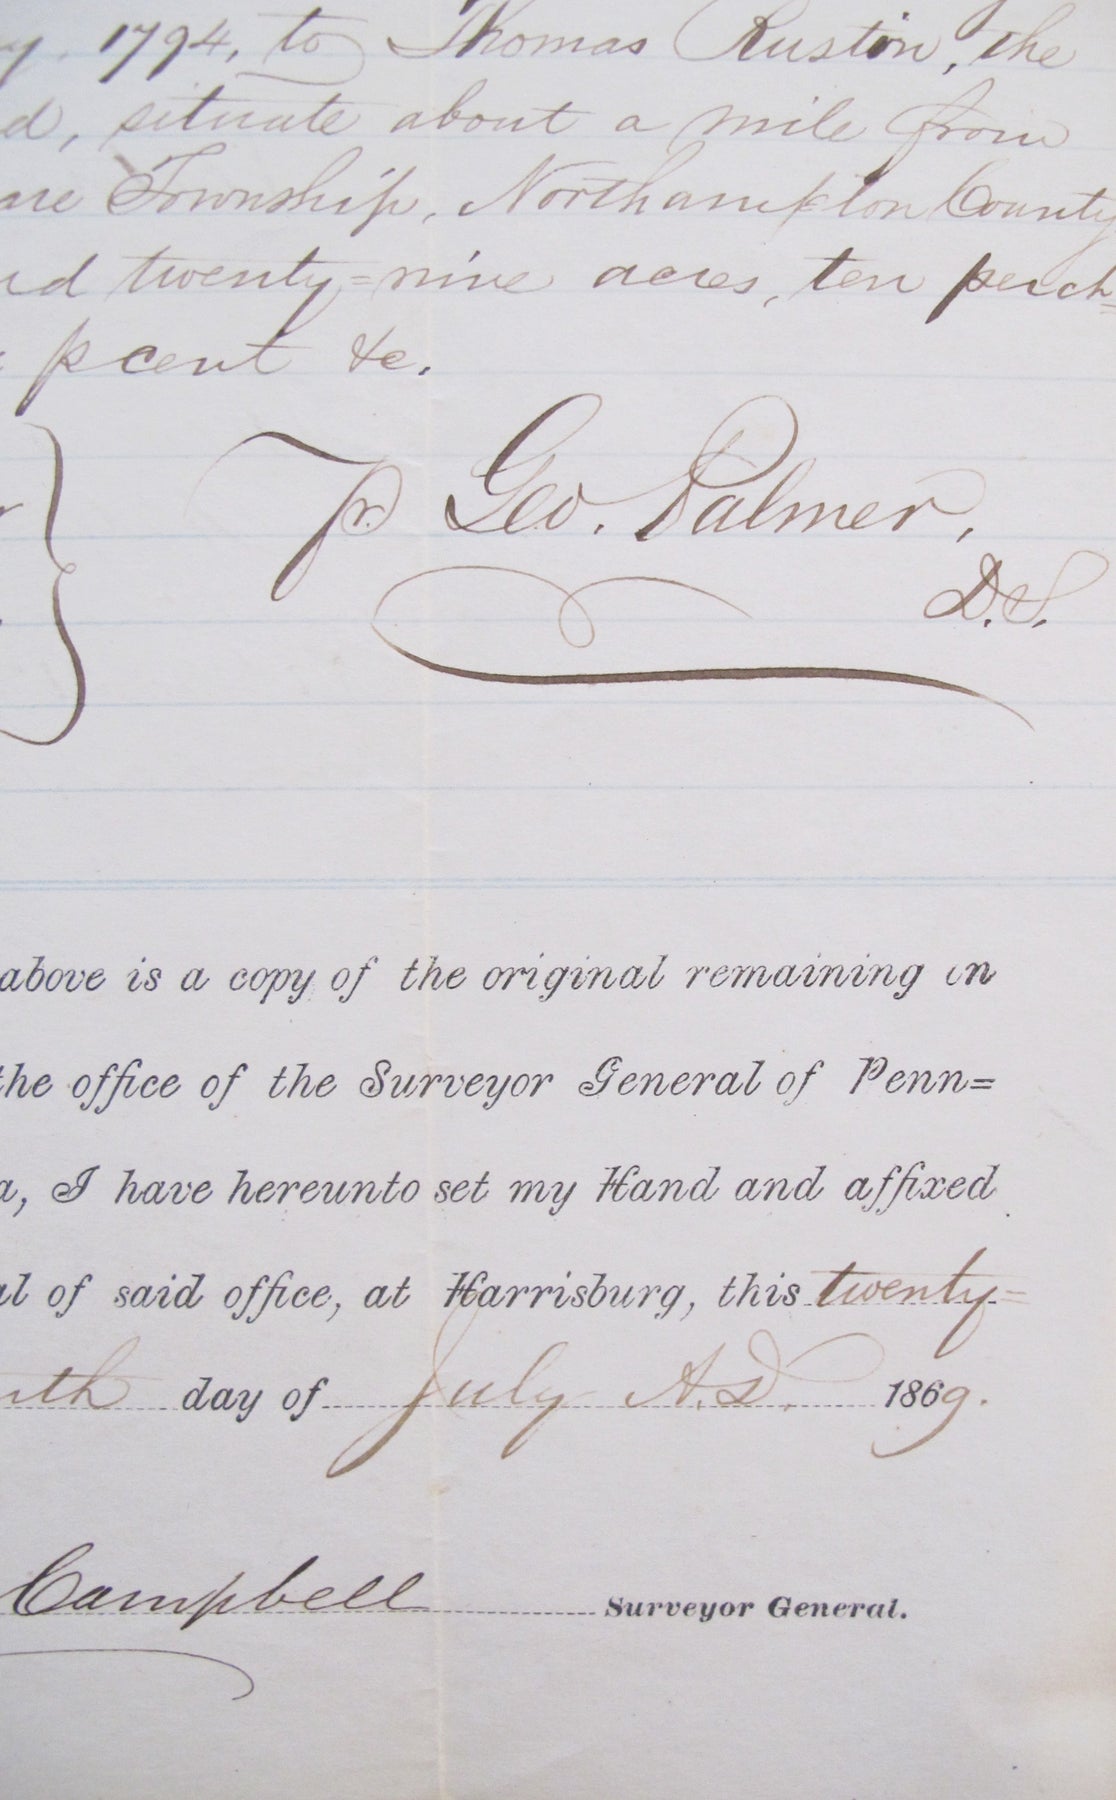 y, 1794, to Thomas Ruston, the
d, situate about a mile from
are Township, Northampton County
nd twenty=nine acres, ten perch=
p cent &c.
pr. Geo. Palmer,
D.S.
above is a copy of the original remaining on
the office of the Surveyor General of Penn=
a, I have hereunto set my Hand and affixed
al of said office, at Harrisburg, this twenty=
nth day of July A.D. 1869.
Campbell Surveyor General.